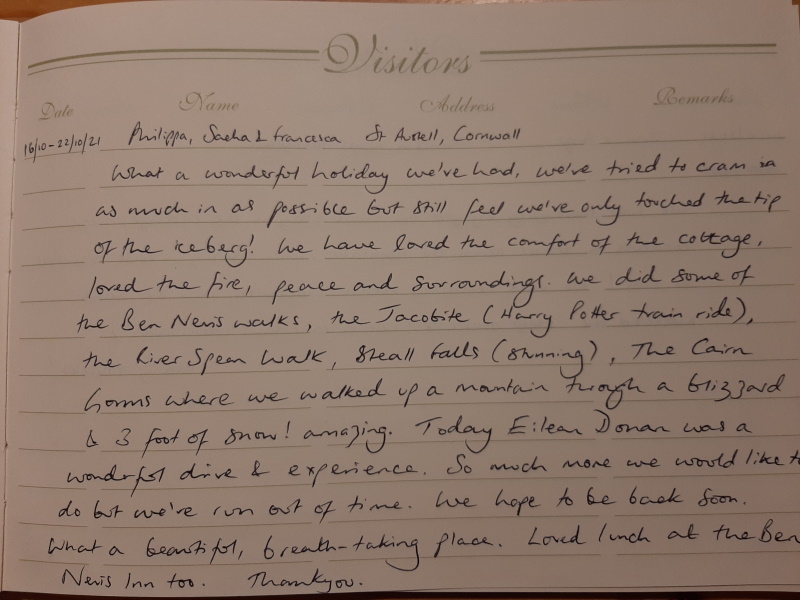 Visitors
Date Name Address Remarks
16/10-22/10/21 Philippa, Sacha & Francesca St Austell, Cornwall
What a wonderful holiday we've had, we've tried to cram in
as much in as possible but still feel we've only touched the tip
of the iceberg! We have loved the comfort of the cottage,
loved the fire, peace and surroundings. We did some of
the Ben Nevis walks, the Jacobite (Harry Potter train ride),
the River Spean Walk, Steall Falls (stunning), The Cairn
Gorms where we walked up a mountain through a blizzard
& 3 foot of snow! amazing. Today Eilean Donan was a
wonderful drive & experience. So much more we would like to
do but we've run out of time. We hope to be back soon.
What a beautiful, breath-taking place. Loved lunch at the Ben
Nevis Inn too. Thankyou.